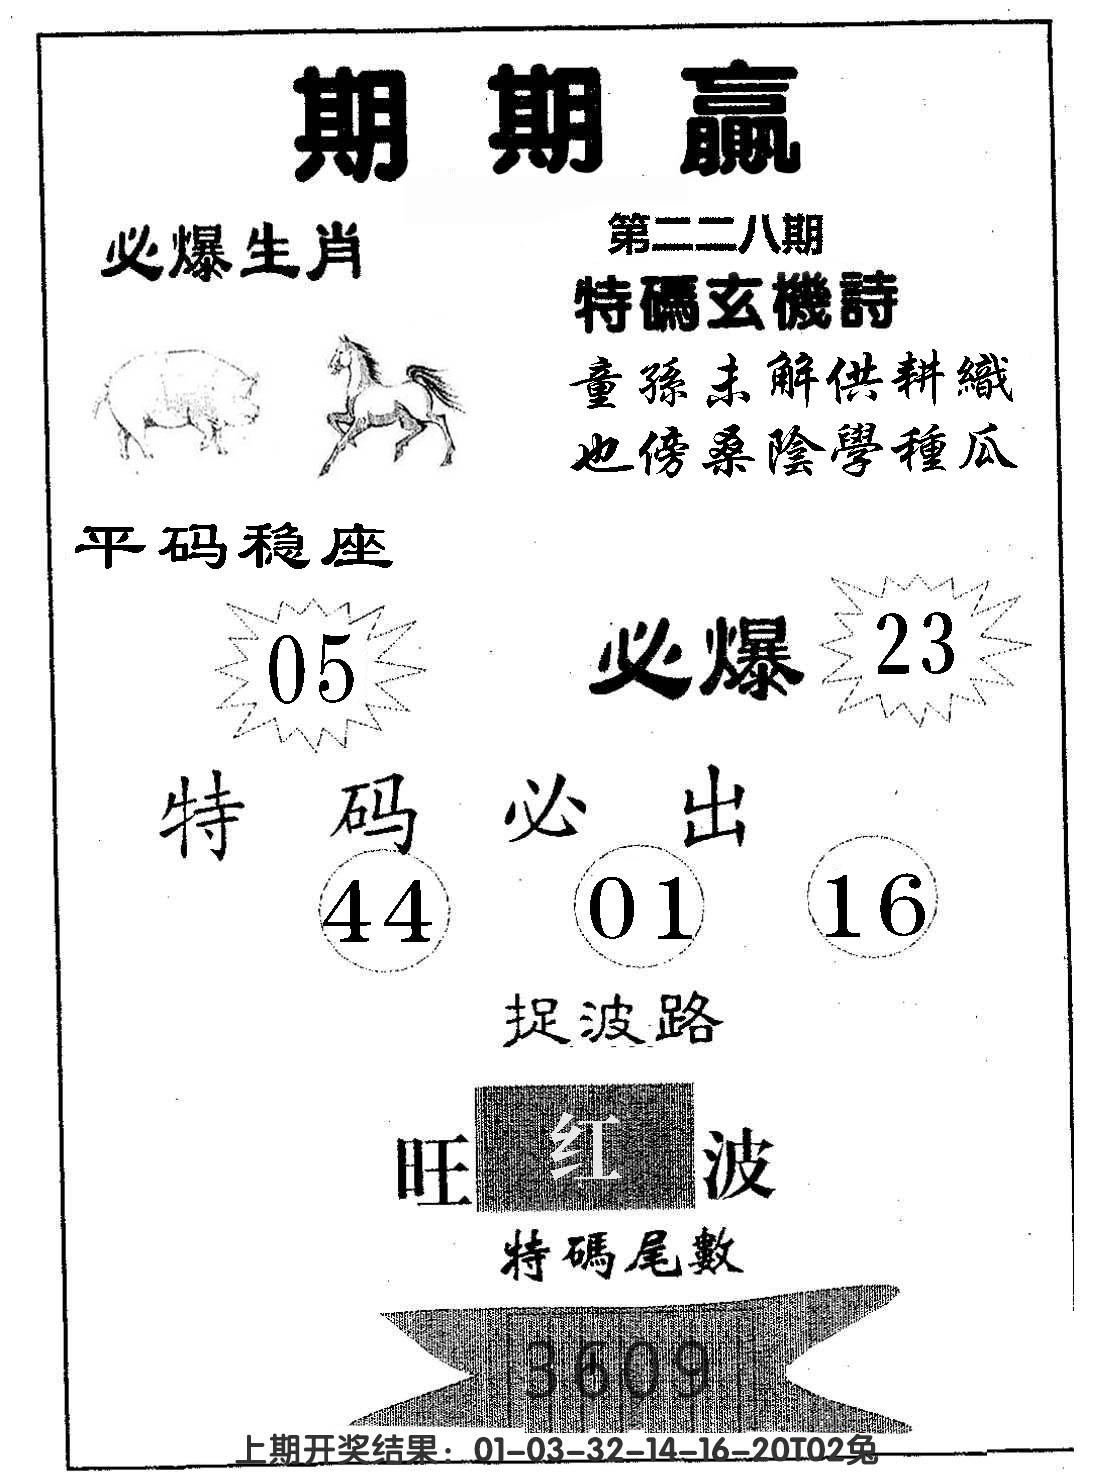 期期赢
必爆生肖
第二二八期
特碼玄機詩
童孫未解供耕織
也傍桑陰學種瓜
平码稳座
05
必爆 23
特码必出
44 01 16
捉波路
旺红波
特碼尾數
3609
上期开奖结果：01-03-32-14-16-20T02兔